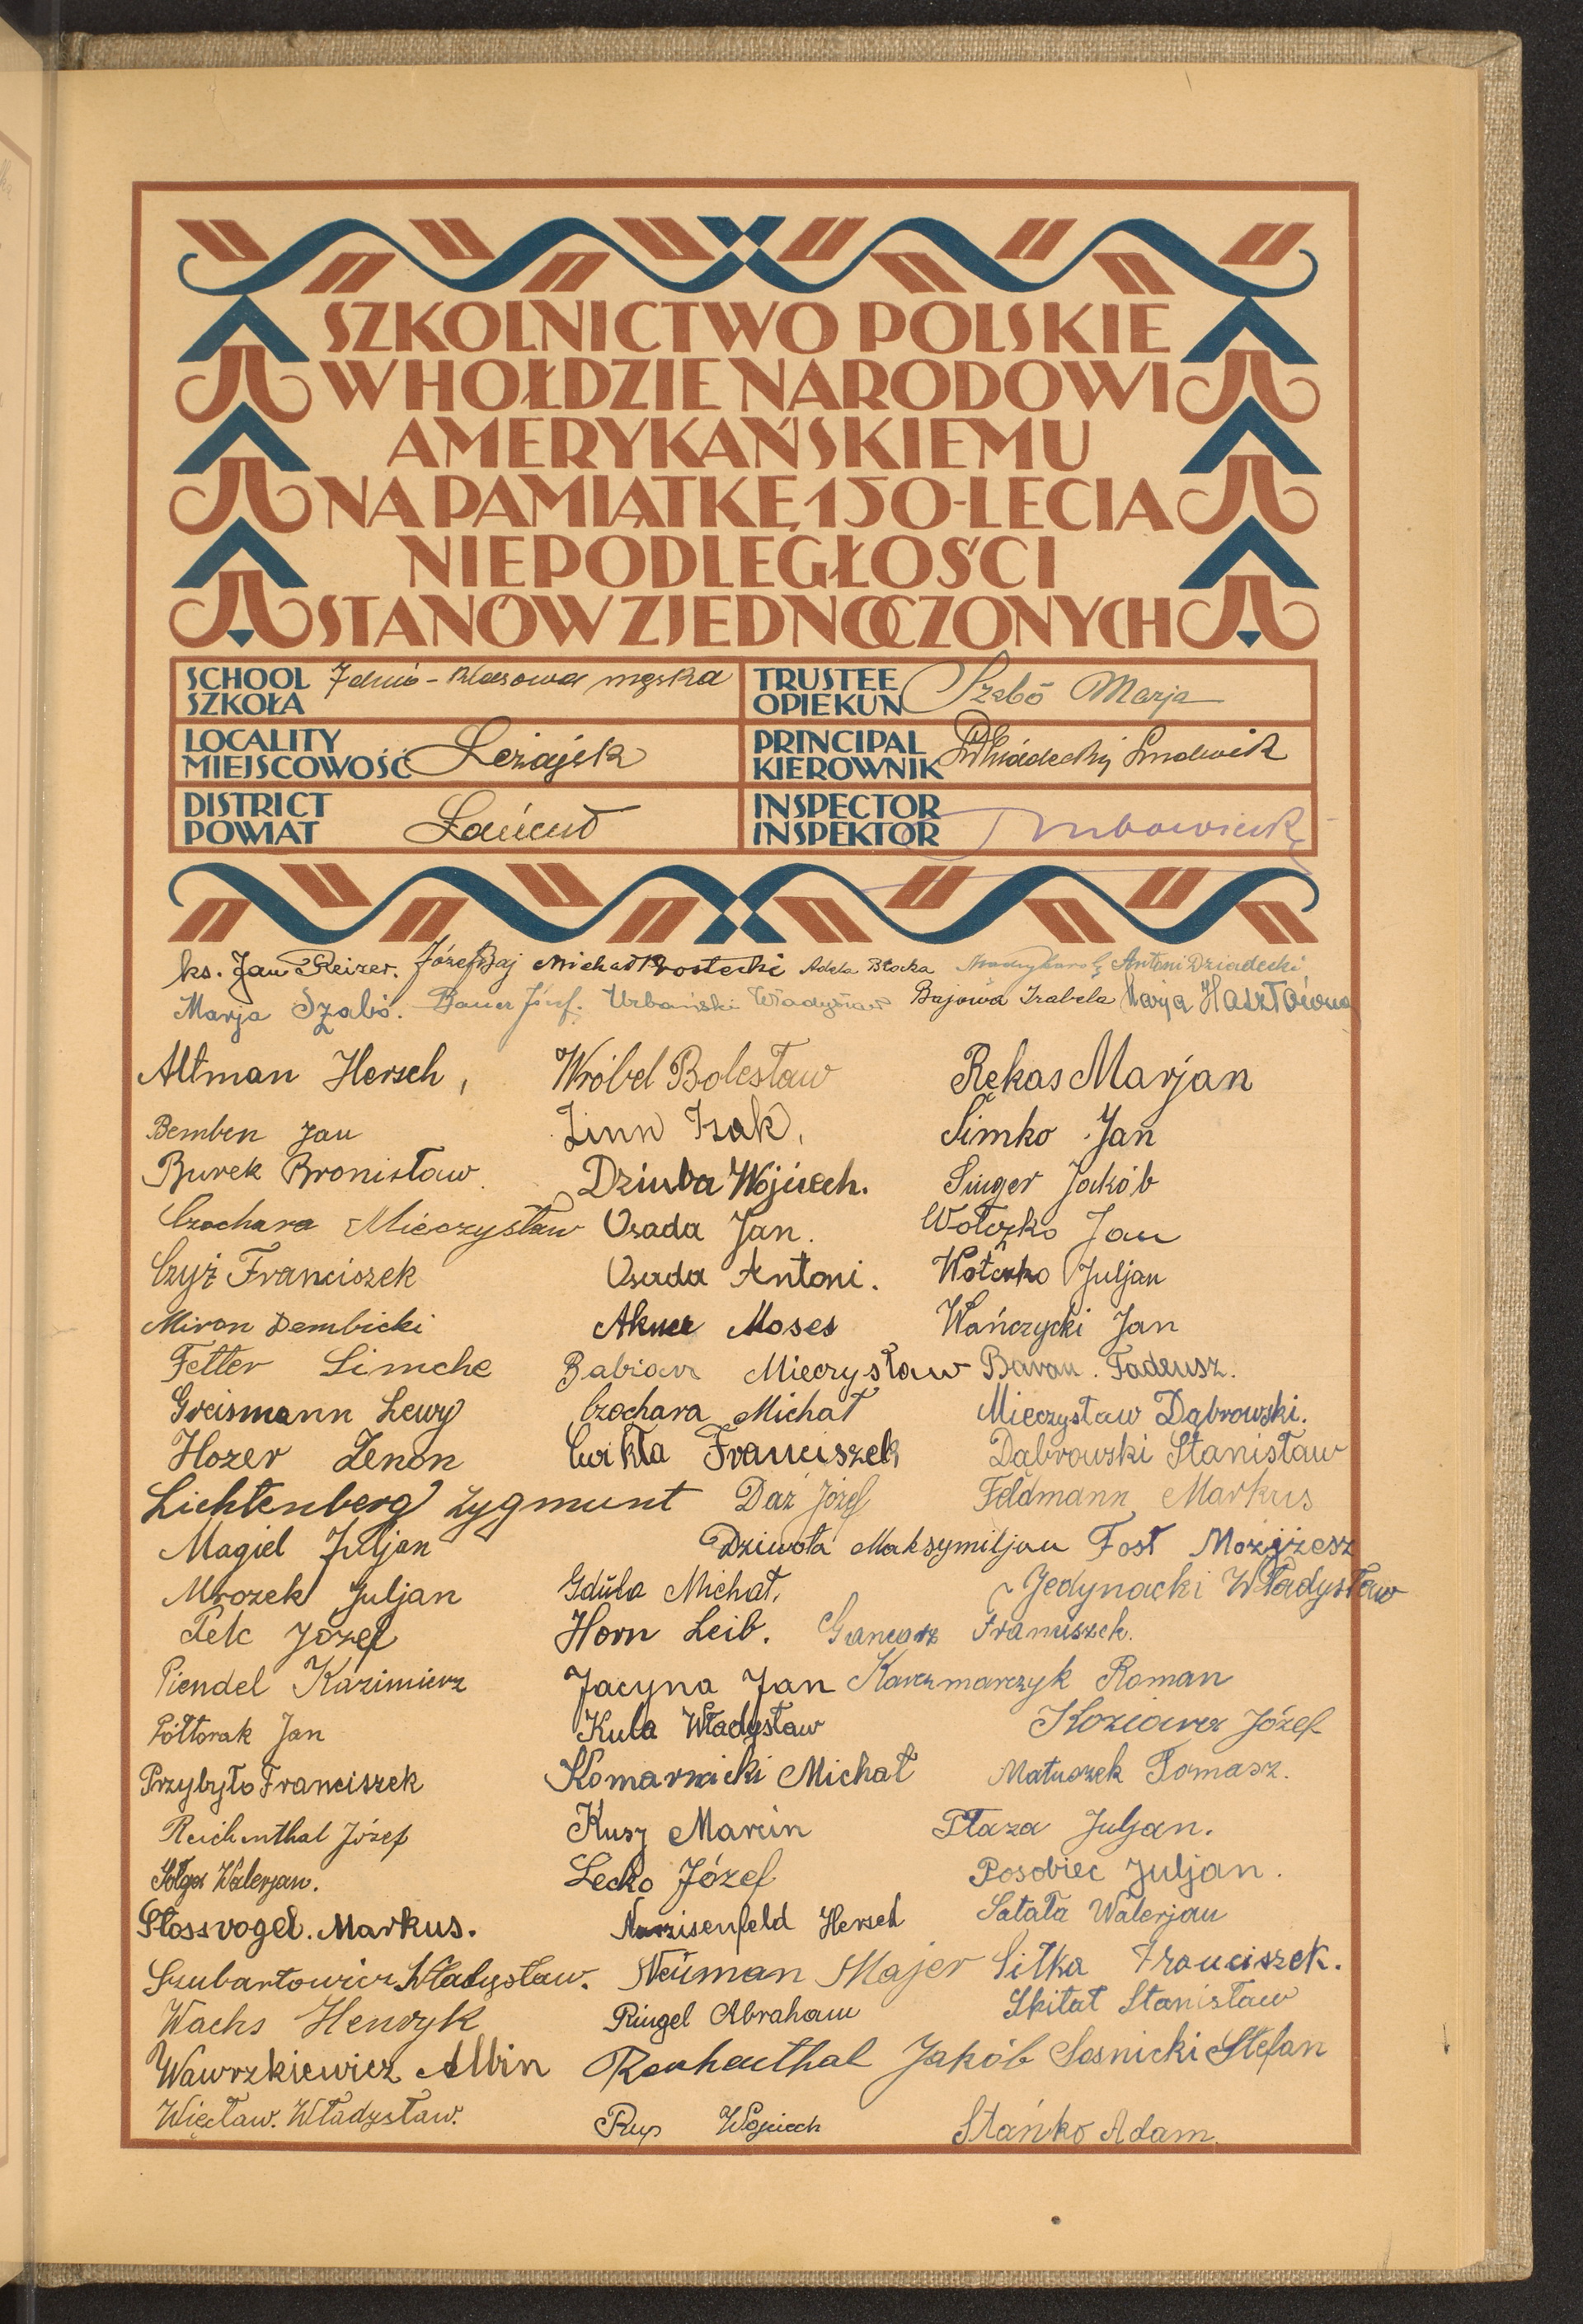 SZKOLNICTWO POLSKIE
W HOŁDZIE NARODOWI
AMERYKAŃSKIEMU
NA PAMIĄTKĘ 150-LECIA
NIEPODLEGŁOŚCI
STANÓW ZJEDNOCZONYCH
SCHOOL SZKOŁA 7dmio-klasowa męska
TRUSTEE OPIEKUN Szabó Marja
LOCALITY MIEJSCOWOŚĆ Leżajsk
PRINCIPAL KIEROWNIK Dhiadecki Ludwik
DISTRICT POWIAT Łańcut
INSPECTOR INSPEKTOR
ks. Jan Reizer. Józef Baj Michał Adela Błocka Antoni Dziadecki
Marja Szabó. Bauer Józef. Urbański Władysław Bajowa Izabela Marja
Altman Hersch, Wróbel Bolesław Rękas Marjan
Bemben Jan Linn Izak, Simko Jan
Burek Bronisław. Dziuba Wojciech. Singer Jakób
Czochara Mieczysław Osada Jan. Wołczko Jan
Czyż Franciszek Osada Antoni. Wołczko Juljan
Miron Dembicki Akner Moses Wańczycki Jan
Fetter Simche Babiarz Mieczysław Baran. Tadeusz.
Greismann Lewy Czochara Michał Mieczysław Dąbrowski.
Hozer Zenon Ćwikła Franciszek Dąbrowski Stanisław
Lichtenberg Zygmunt Daź Józef Feldmann Markus
Magiel Juljan Dziwota Maksymiljan Fost Możjżesz
Mrozek Juljan Gduła Michał. Jedynacki Władysław
Pelc Józef Horn Leib. Gancarz Franciszek.
Piendel Kazimierz Jacyna Jan Karczmarczyk Roman
Półtorak Jan Kula Władysław Koziarz Józef
Przybyło Franciszek Komarnicki Michał Matuszek Tomasz.
Reichenthal Józef Kusy Marcin Płaza Juljan.
Sołga Walerjan. Lecko Józef Posobiec Juljan.
Stossvogel. Markus. Hersch Satała Walerjan
Szubartowicz Władysław. Neuman Majer Sitka Franciszek.
Wachs Henryk Ringel Abraham Skitał Stanisław
Wawrzkiewicz Albin Jakób Sosnicki Stefan
Więcław. Władysław. Rup Wojciech Stańko Adam.